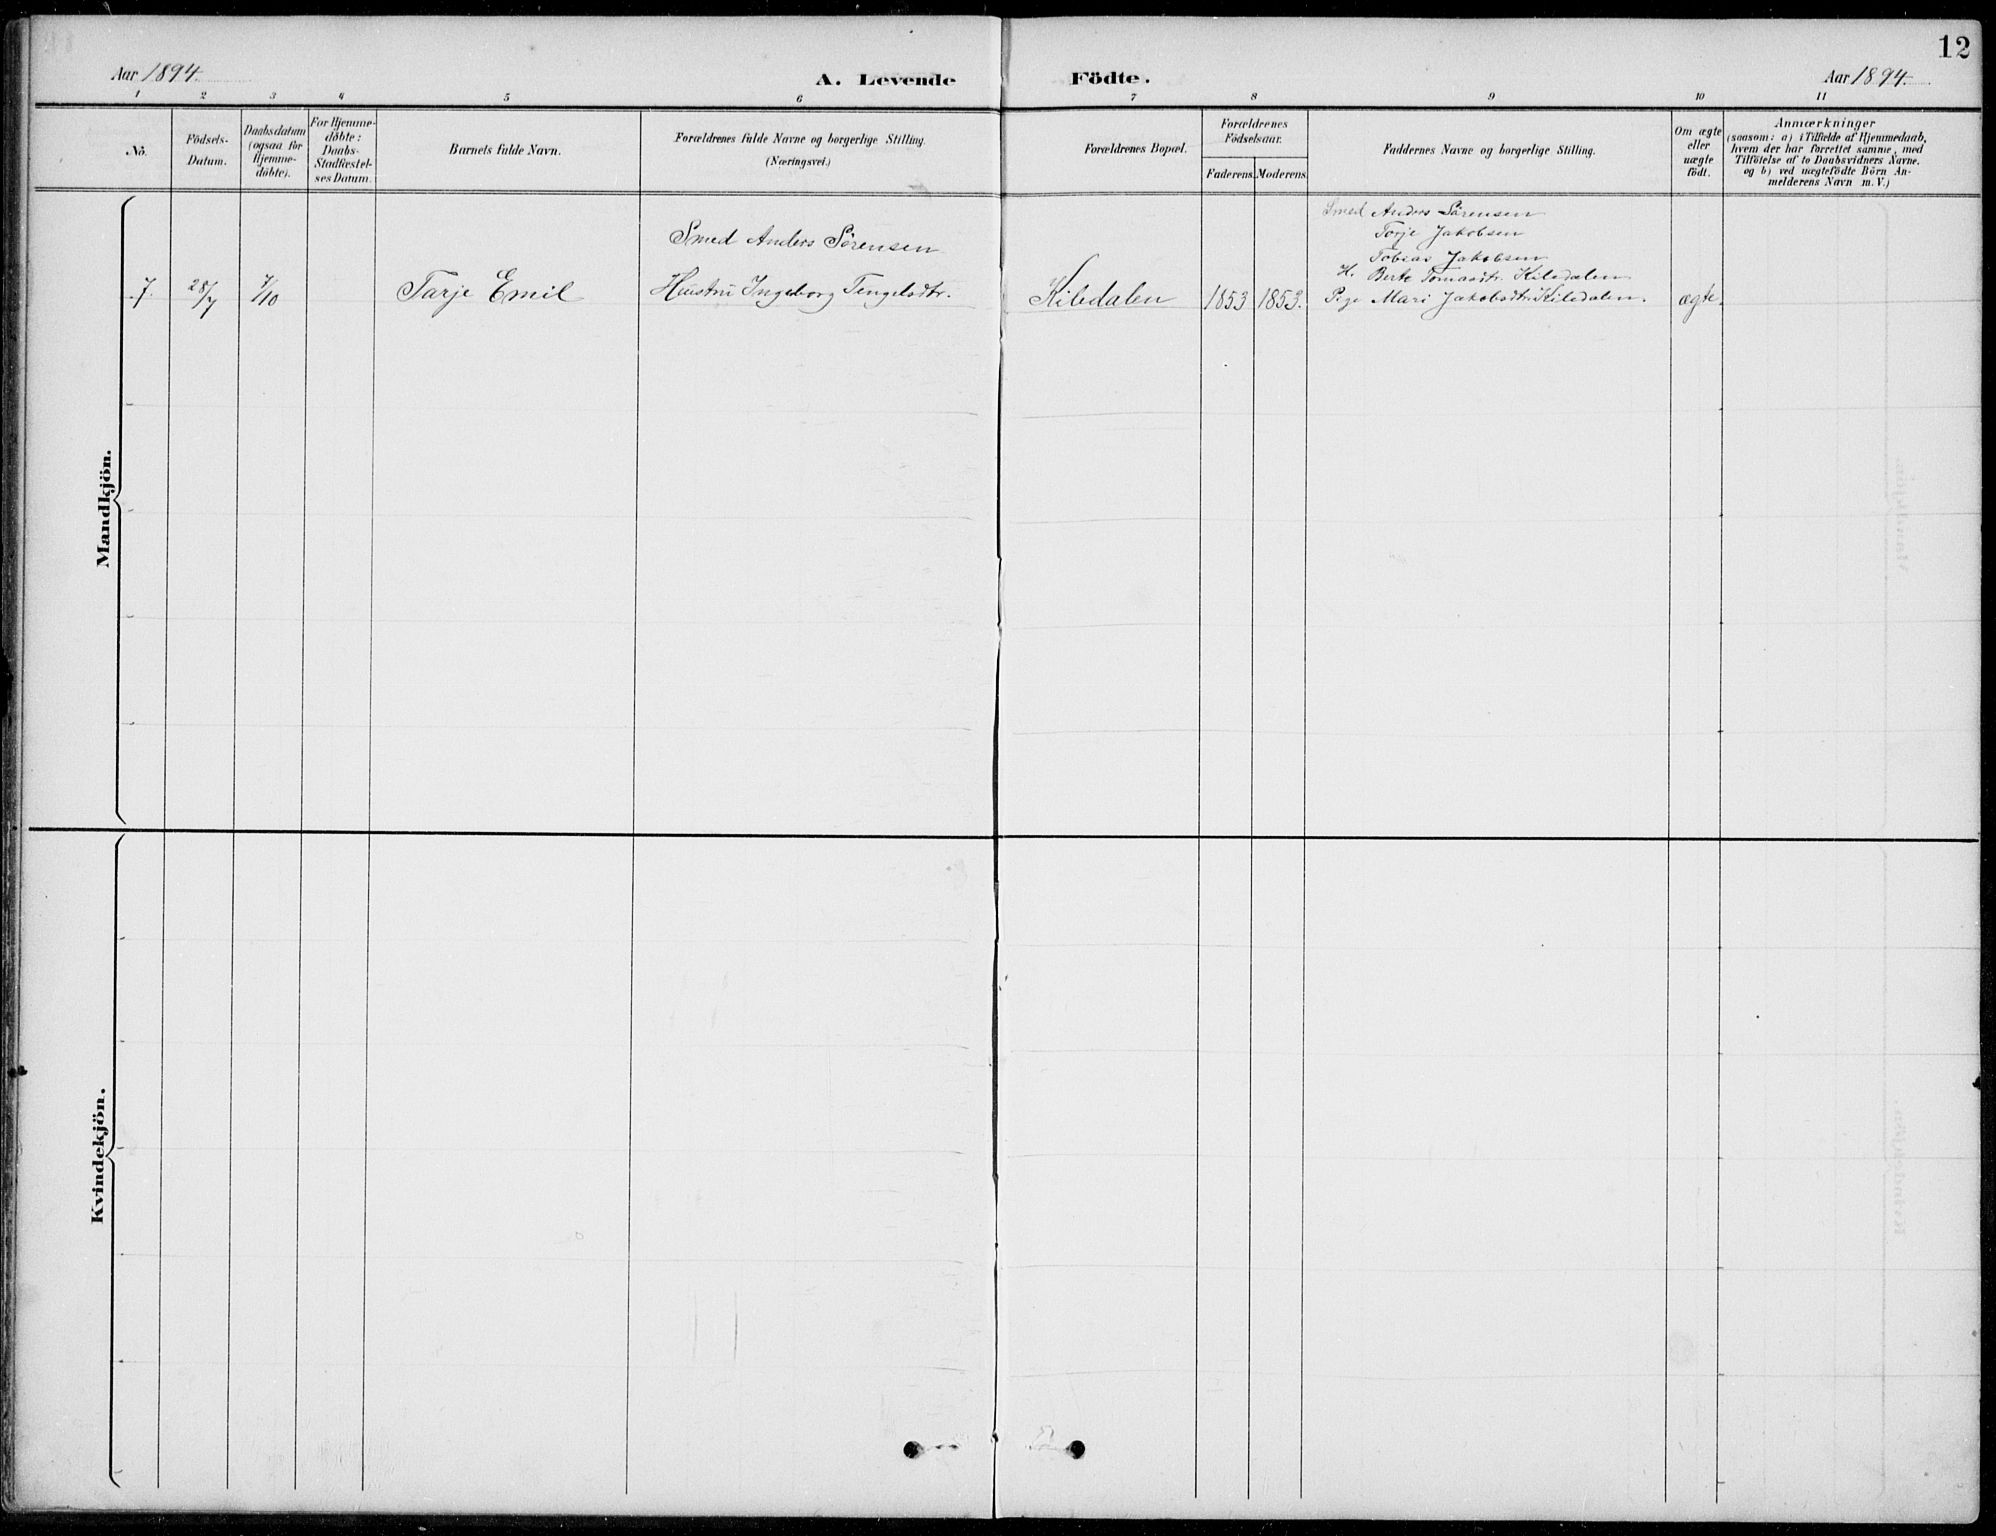 12
Aar 1894.
A. Levende Födte.
Aar 1894.
1 2 3 4 5 6 7 8 9 10 11
No.
Födsels-
Datum.
Daabsdatum
(ogsaa for
Hjemme-
döbte).
For Hjemme-
döbte:
Daabs-
Stadfæstel-
ses Datum.
Barnets fulde Navn.
Forældrenes fulde Navne og borgerlige Stilling
(Næringsvei.)
Forældrenes Bopæl.
Forældrenes
Födselsaar.
Faderens. Moderens.
Faddernes Navne og borgerlige Stilling.
Om ægte
eller
uægte
födt.
Anmærkninger
(saasom: a) i Tilfælde af Hjemmedaab,
hvem der har forrettet samme, med
Tilföielse af to Daabsvidners Navne.
og b) ved uægtefödte Börn An-
melderens Navn m. V.)
Mandkjön.
7.
28/7
7/10
Tarje Emil
Smed Anders Sörensen
Hustru Ingeborg Tengelsdtr.
Kiledalen
1853
1853.
Smed Anders Sörensen
Torje Jakobsen
Tobias Jakobsen
H. Berte Tomasdtr. Kiledalen
Pige Mari Jakobsdtr. Kiledalen.
ægte.
Kvindekjön.